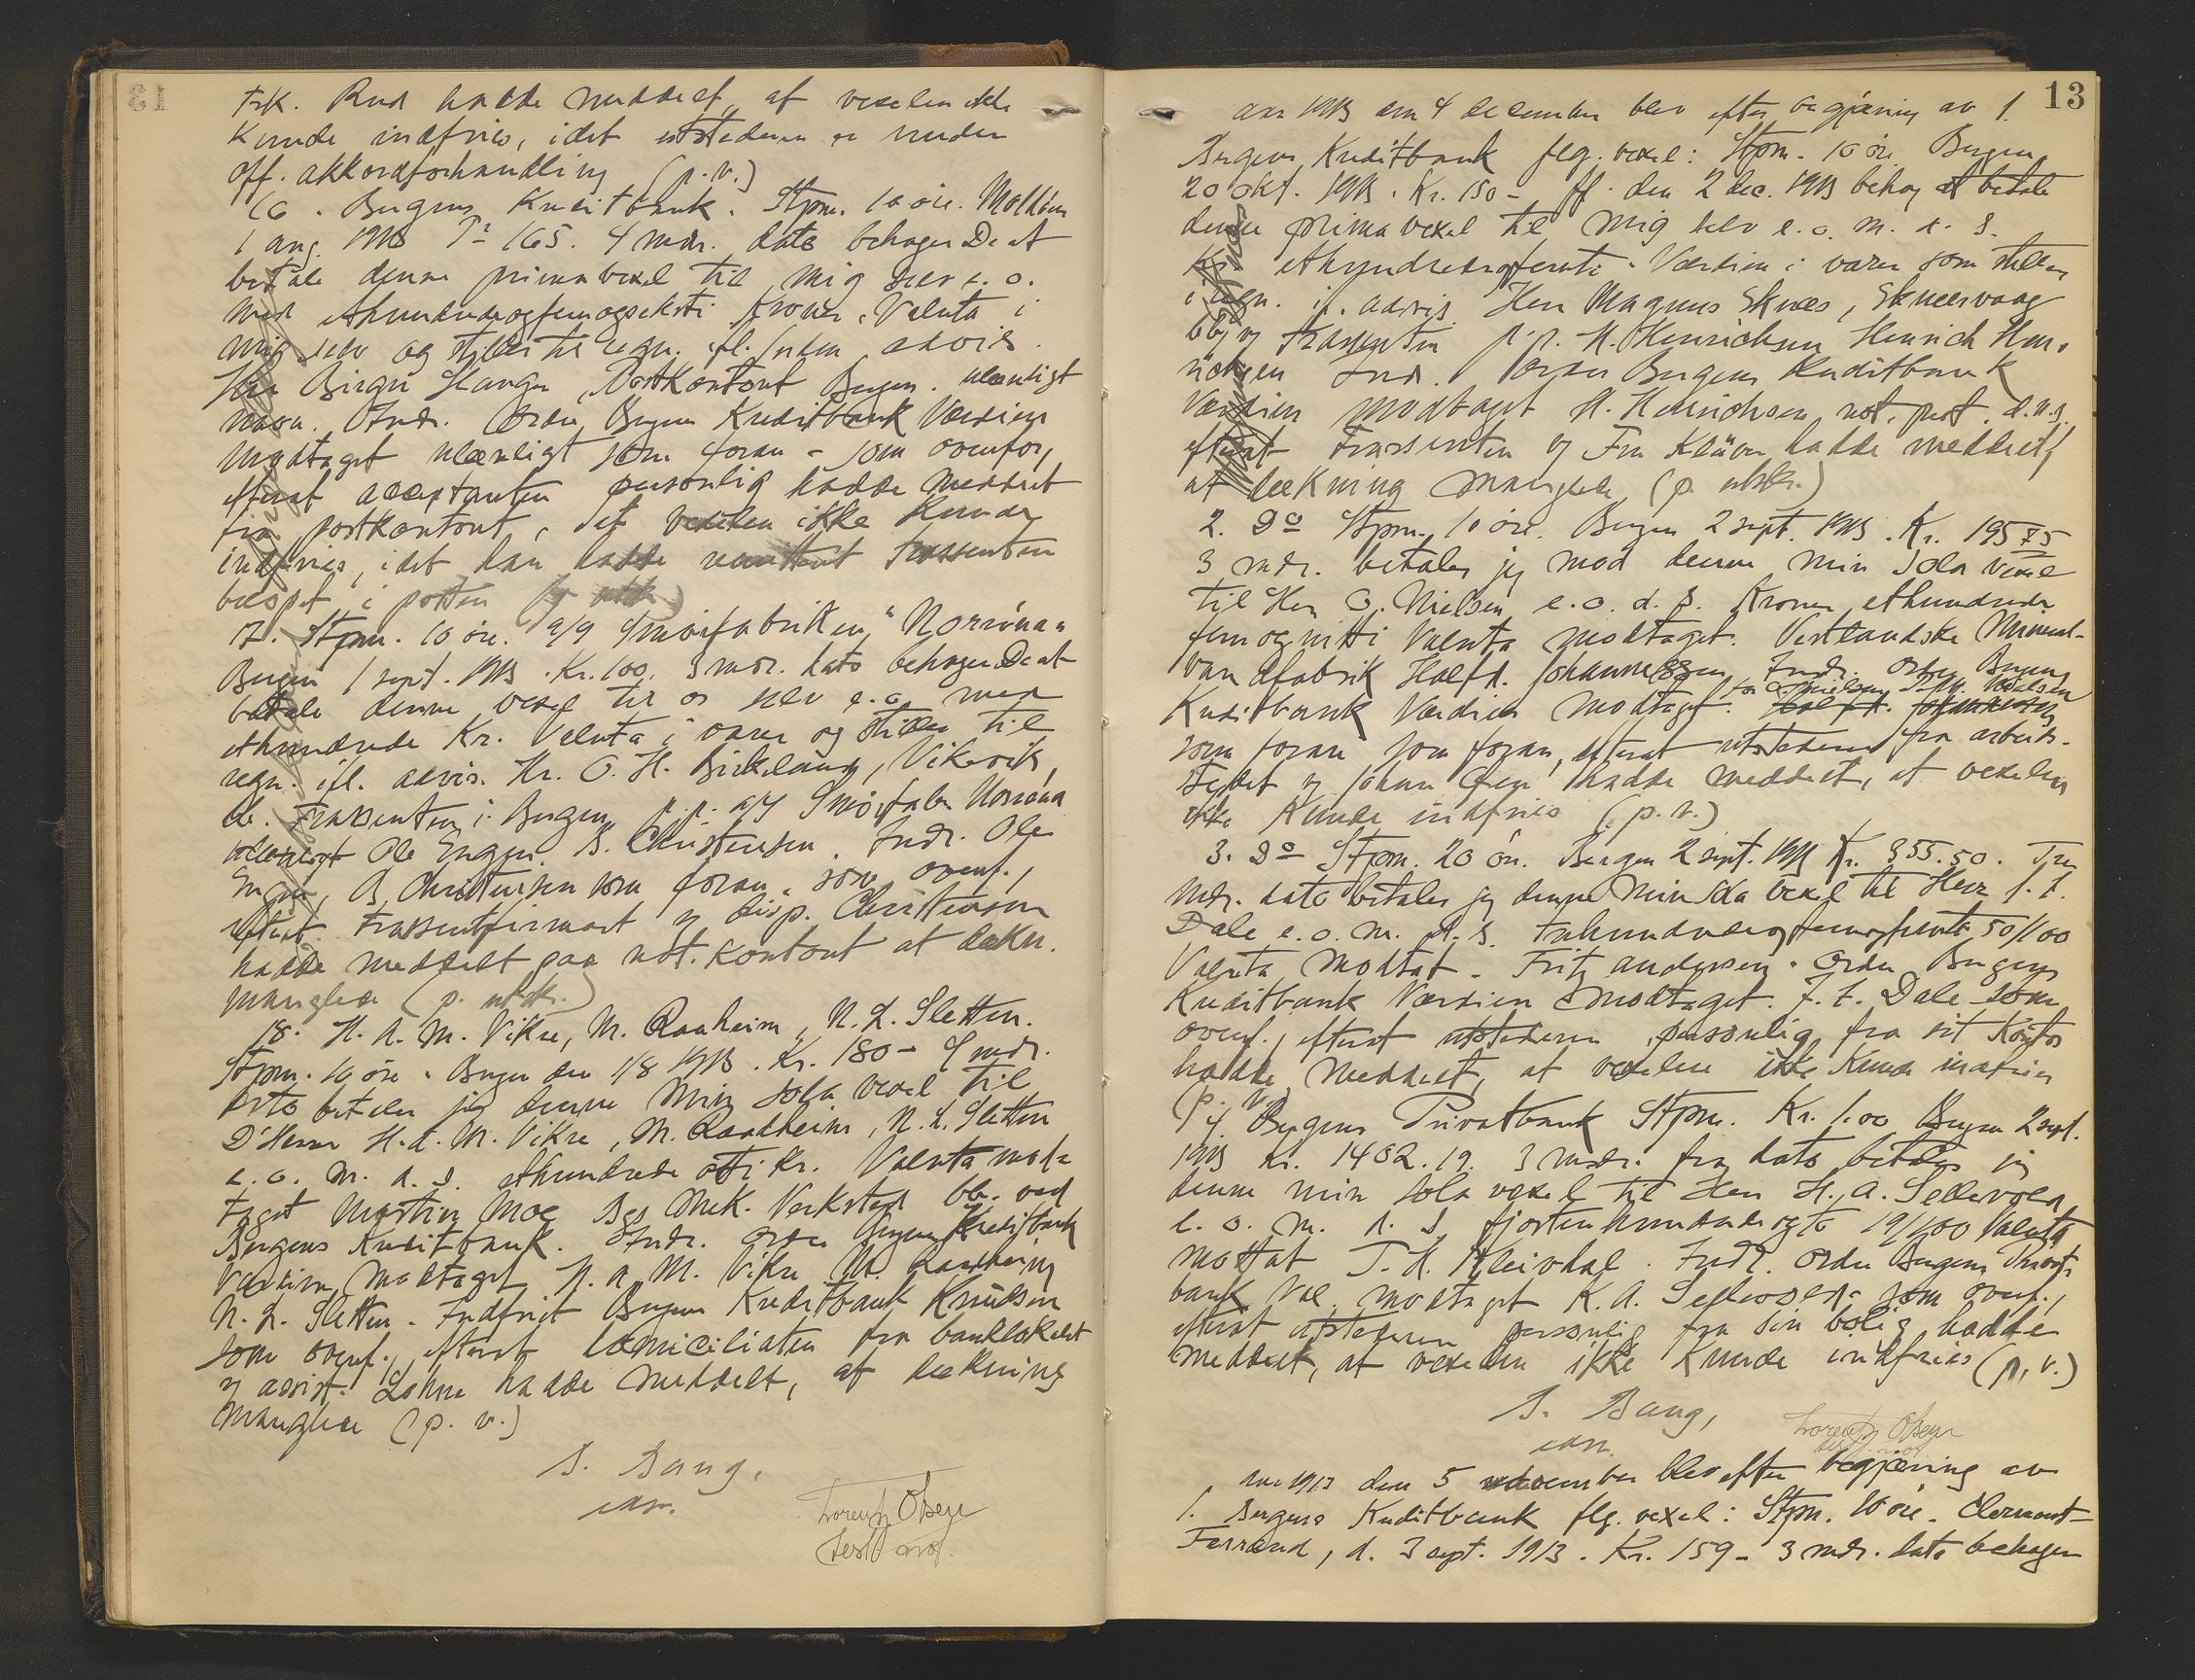 Frk. Rud hadde meddelt, at vexelen ikke
kunde indfries, idet utstederen er under
off. akkordforhandling (p. v.)
16. Bergens Kreditbank. Stpm. 10 øre.
1 aug. 1913 165. 4 mdr. dato behager De at
betale denne primavexel til mig selv e. o.
med ethundredeogfemogseksti Kroner. Valuta i
mig selv og stilles til regn. ifl. advis.
Herr Birger, Postkontoret Bergen. ulæseligt
navn. Indr. Ordre Bergens Kreditbank Værdien
modtaget ulæseligt som foran - som ovenfor,
efterat acceptanten personlig hadde meddelt
fra postkontoret, at vexelen ikke kunde
indfries, idet han hadde trassenten
beløpet i posten
17. Stpm. 10 øre. a/s Smørfabriken "Norröna"
Bergen 1 sept. 1913. Kr. 100. 3 mdr. dato behager De at
betale denne vexel til os selv e. o. med
ethundrede Kr. Valuta i varer og stilles til
regn. ifl. advis. Hr. O. H. Birkeland, Vikevik,
Trassenten i Bergen p.p. a/s Smørfabr. Norröna
ulæseligt Ole Enger. B. Christensen. Indr. Ole
Enger, B. Christensen som foran. som ovenf.,
efterat Trassentfirmaet ved disp. Christensen
hadde meddelt paa not. kontoret at dækn.
manglede (p. utstr.)
18. H. A. M. Vikre, M. Raaheim, N. L. Sletten.
Stpm. 10 øre. Bergen den 1/8 1913. Kr. 180 - 4 mdr.
dato betaler jeg denne min sola vexel til
D'Herrer H. A. M. Vikre, M. Raaheim, N. L. Sletten
e. o. m. d. s. ethundrede otti Kr. Valuta mod-
taget Martin Moe Bgs Mek. Verksted bet. ved
Bergens Kreditbank. Indr. Ordre Bergens Kreditbank
Værdien modtaget H. A. M. Vikre M. Raaheim
N. L. Sletten. Indfriet Bergens Kreditbank Knudsen
som ovenf., efterat domiciliaten fra banklokalet
v/ assist. hadde meddelt, at dækning
manglede (p. v.)
B. Bang,
Lorentz Olsen
13
Aar 1913 den 4 december blev efter begjæring av 1.
Bergens Kreditbank flg. vexel: Stpm. 10 øre Bergen
20 okt. 1913. Kr. 150 - pr. den 2 dec. 1913 behag at betale
denne prima vexel til mig selv e. o. m. d. s.
Kr. ethundredeogfemti. Værdien i varer som stilles
i regn. if. advis Herr Magnus Eknes, Eknesvaag
Trassenten p.p. H. Henrichsen Henrich Hen-
richsen Indr. Ordre Bergens Kreditbank
Værdien modtaget H. Henrichsen not. prot. d.u.s.
efterat Trassenten v/ Fru hadde meddelt,
at dækning manglede (p. utstr.)
2. Do Stpm. 10 øre. Bergen 2 sept. 1913. Kr. 195 75
3 mdr. betaler jeg mod denne min sola vexel
til Herr O. Nielsen e. o. d. s. Kroner ethundrede
femognitti Valuta modtaget. Vestlandske Mineral-
vandfabrik Halfd. Johannessen Indr. Ordre Bergens
Kreditbank Værdien modtaget. for O. Nielsen
som foran som foran, efterat utstederen fra arbeids-
stedet v/ Johan hadde meddelt, at vexelen
ikke kunde indfries (p. v.)
3. Do Stpm. 20 øre. Bergen 2 sept. 1913 Kr. 355.50. Tre
mdr. dato betaler jeg denne min sola vexel til Herr J. T.
Dale e. o. m. d. s. Trehundredeogfemogfemti 50/100
Valuta modtat - Fritz Andersen. Ordre Bergens
Kreditbank Værdien modtaget. J. T. Dale som
ovenf., efterat utstederen personlig fra sit kontor
hadde meddelt, at vexelen ikke kunde indfries
(p. v.)
4. Bergens Privatbank Stpm. Kr. 1.00 Bergen 2 sept.
1913 Kr. 1402.19. 3 mdr. fra dato betaler jeg
denne min sola vexel til Herr H. A. Sellevold
e. o. m. d. s. fjortenhundredeogto 19/100 Valuta
mottat T. H. Kleivdal. Indr. Ordre Bergens Privat-
bank Val. modtaget K. A. Sellevold - som ovenf.,
efterat utstederen personlig fra sin bolig hadde
meddelt, at vexelen ikke kunde indfries (p. v.)
B. Bang,
Lorentz Olsen
Aar 1913 den 5 december blev efter begjæring av
1. Bergens Kreditbank flg. vexel: Stpm. 10 øre. Clermont-
Ferrand, d. 3 sept. 1913. Kr. 159 - 3 mdr. dato behager